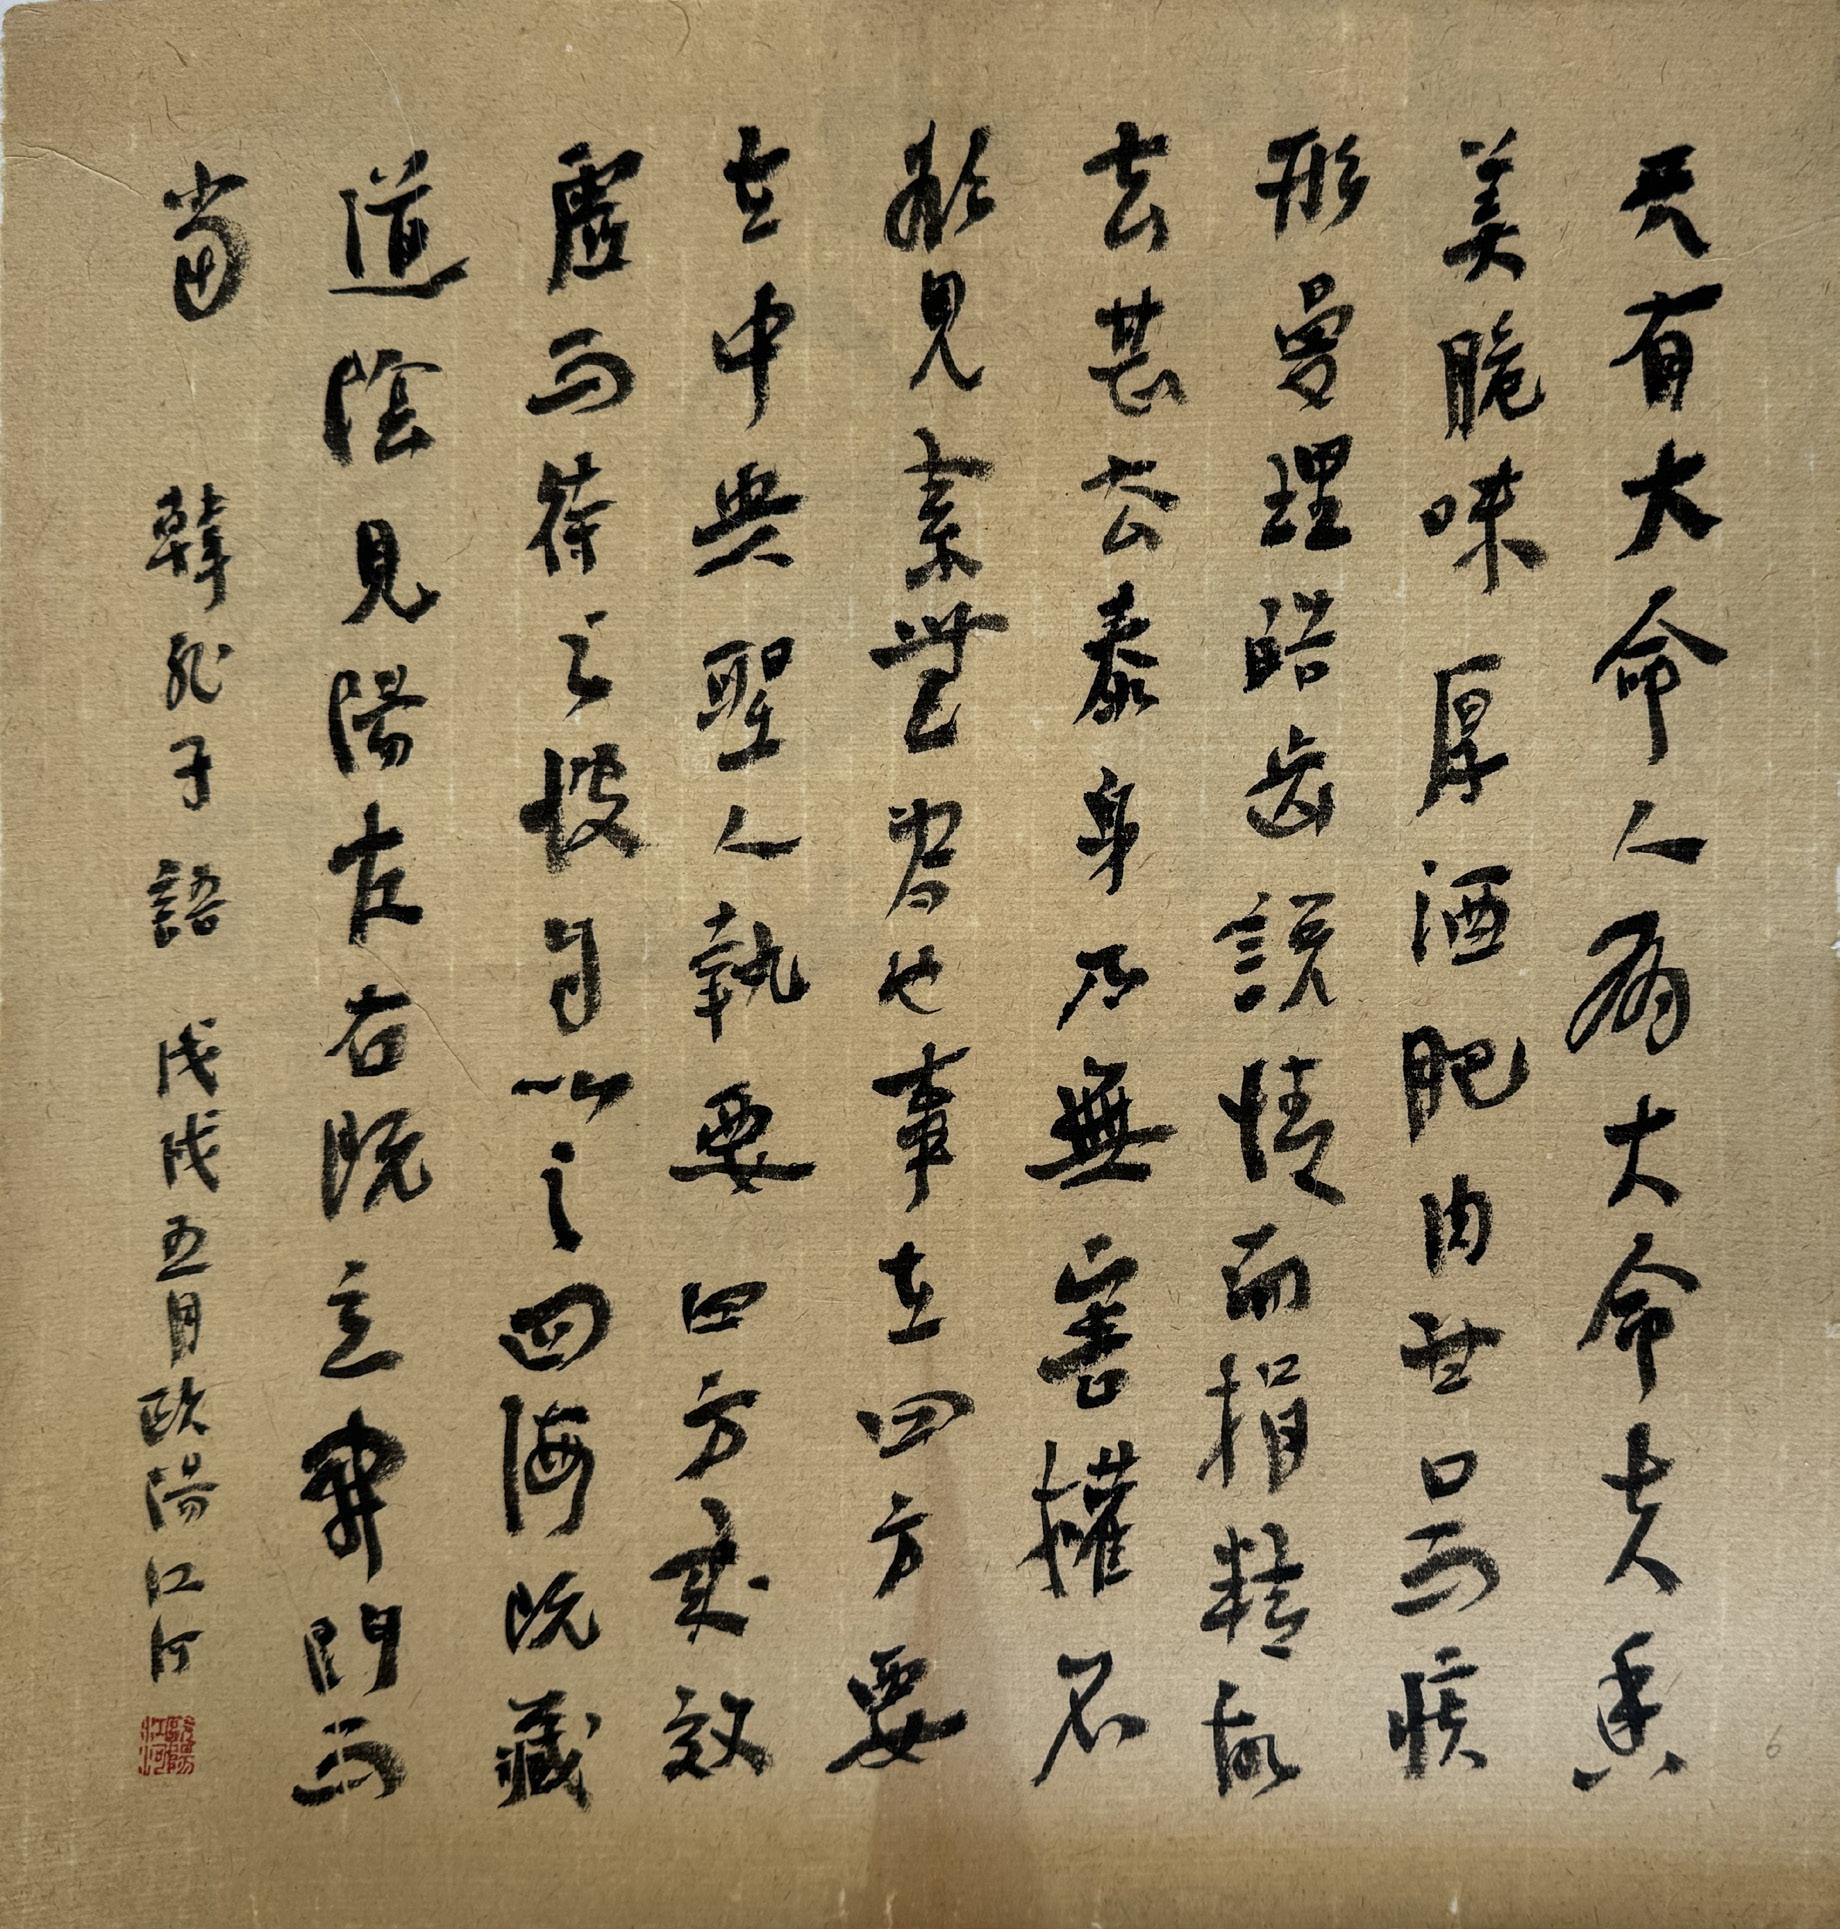 天有大命人有大命夫香
美脆味厚酒肥肉甘口而疾
形曼理皓齿說情而捐精故
去甚去泰身乃無害權不
欲見素無為也事在四方要
在中央聖人執要四方來效
虛而待之彼自以之四海既藏
道陰見陽左右既立開門而
當 韓非子語 戊戌五月歐陽江河
歐陽江河
6